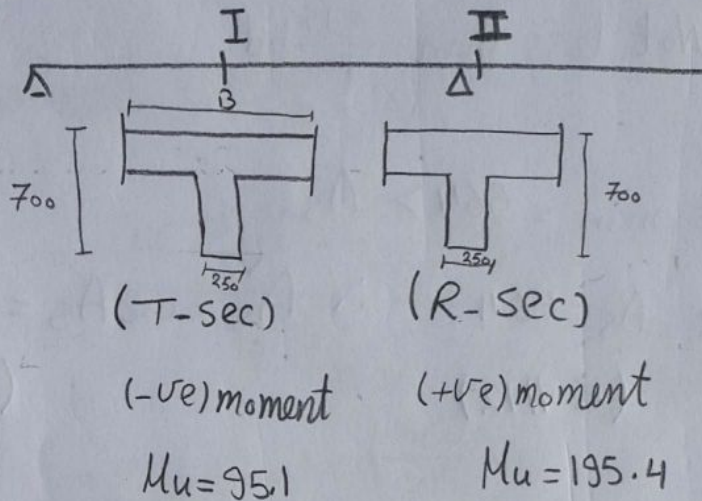 I II
B
700 700
250 250
(T-sec) (R-sec)
(-ve) moment (+ve) moment
Mu=95.1 Mu=195.4